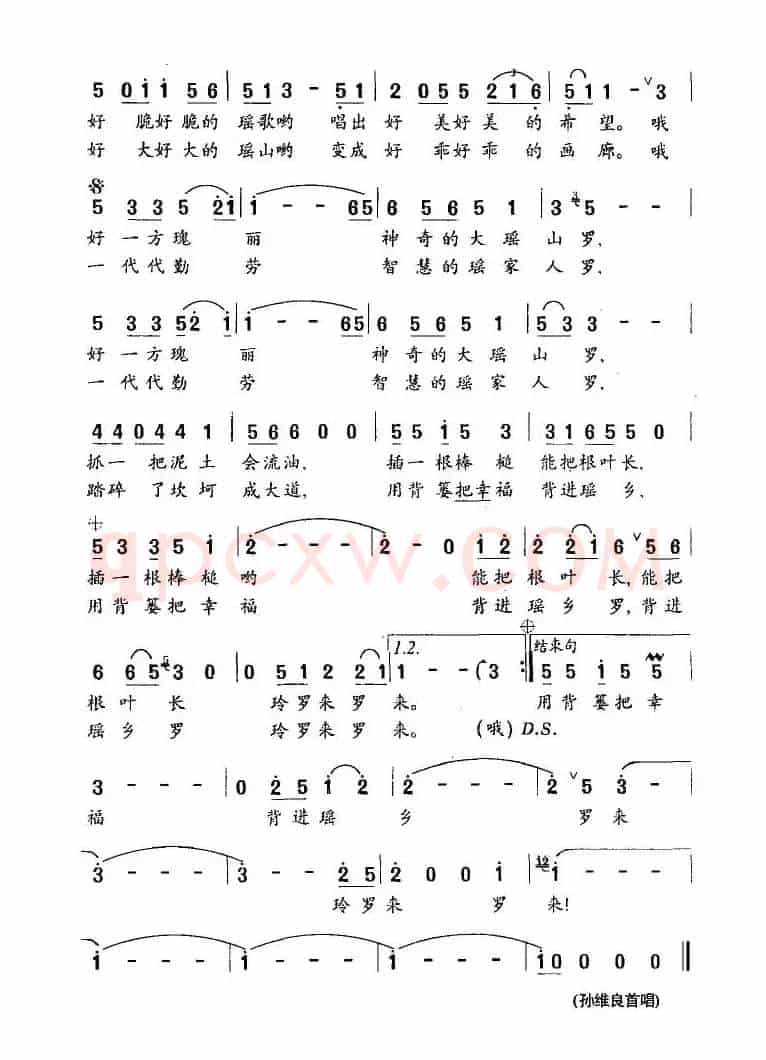 5 0i i 5 6 | 5 1 3 - 5 1 | 2 0 5 5 2 1 6 | 5 1 1 - ∨ 3 |
好 脆好脆的 瑶歌哟 唱出 好 美好美 的 希望。哦
好 大好大的 瑶山哟 变成 好 乖好乖 的 画廊。哦
5 3 3 5 2 i | i - - 6 5 | 6 5 6 5 1 | 3 5 - - |
好 一方瑰 丽 神奇的大瑶山罗,
一代代勤 劳 智慧的瑶家人罗,
5 3 3 5 2 i | i - - 6 5 | 6 5 6 5 1 | 5 3 3 - - |
好 一方瑰 丽 神奇的大瑶山 罗,
一代代勤 劳 智慧的瑶家人 罗,
4 4 0 4 4 1 | 5 6 6 0 0 | 5 5 i 5 3 | 3 1 6 5 5 0 |
抓一 把泥土 会流油, 插一根棒槌 能把根叶长,
踏碎 了坎坷 成大道, 用背篓把幸福 背进瑶乡,
5 3 3 5 1 | 2 - - - | 2 - 0 1 2 | 2 2 i 6 5 6 |
插一根棒槌 哟 能把 根叶长,能把
用背篓把幸 福 背进 瑶乡罗,背进
6 6 5 3 0 | 0 5 1 2 2 1 | 1.2. 1 - - (3 :| 结束句 5 5 i 5 |
根叶长 玲罗来罗 来。 用背篓把幸
瑶乡罗 玲罗来罗 来。 (哦) D.S.
3 - - - | 0 2 5 i 2 | 2 - - - | 2 ∨ 5 3 |
福 背进瑶 乡 罗来
3 - - - | 3 - - 2 5 | 2 0 0 i | i - - - |
玲罗来 罗 来!
i - - - | i - - - | i - - - | i 0 0 0 0 ||
(孙维良首唱)
qpcxw.com